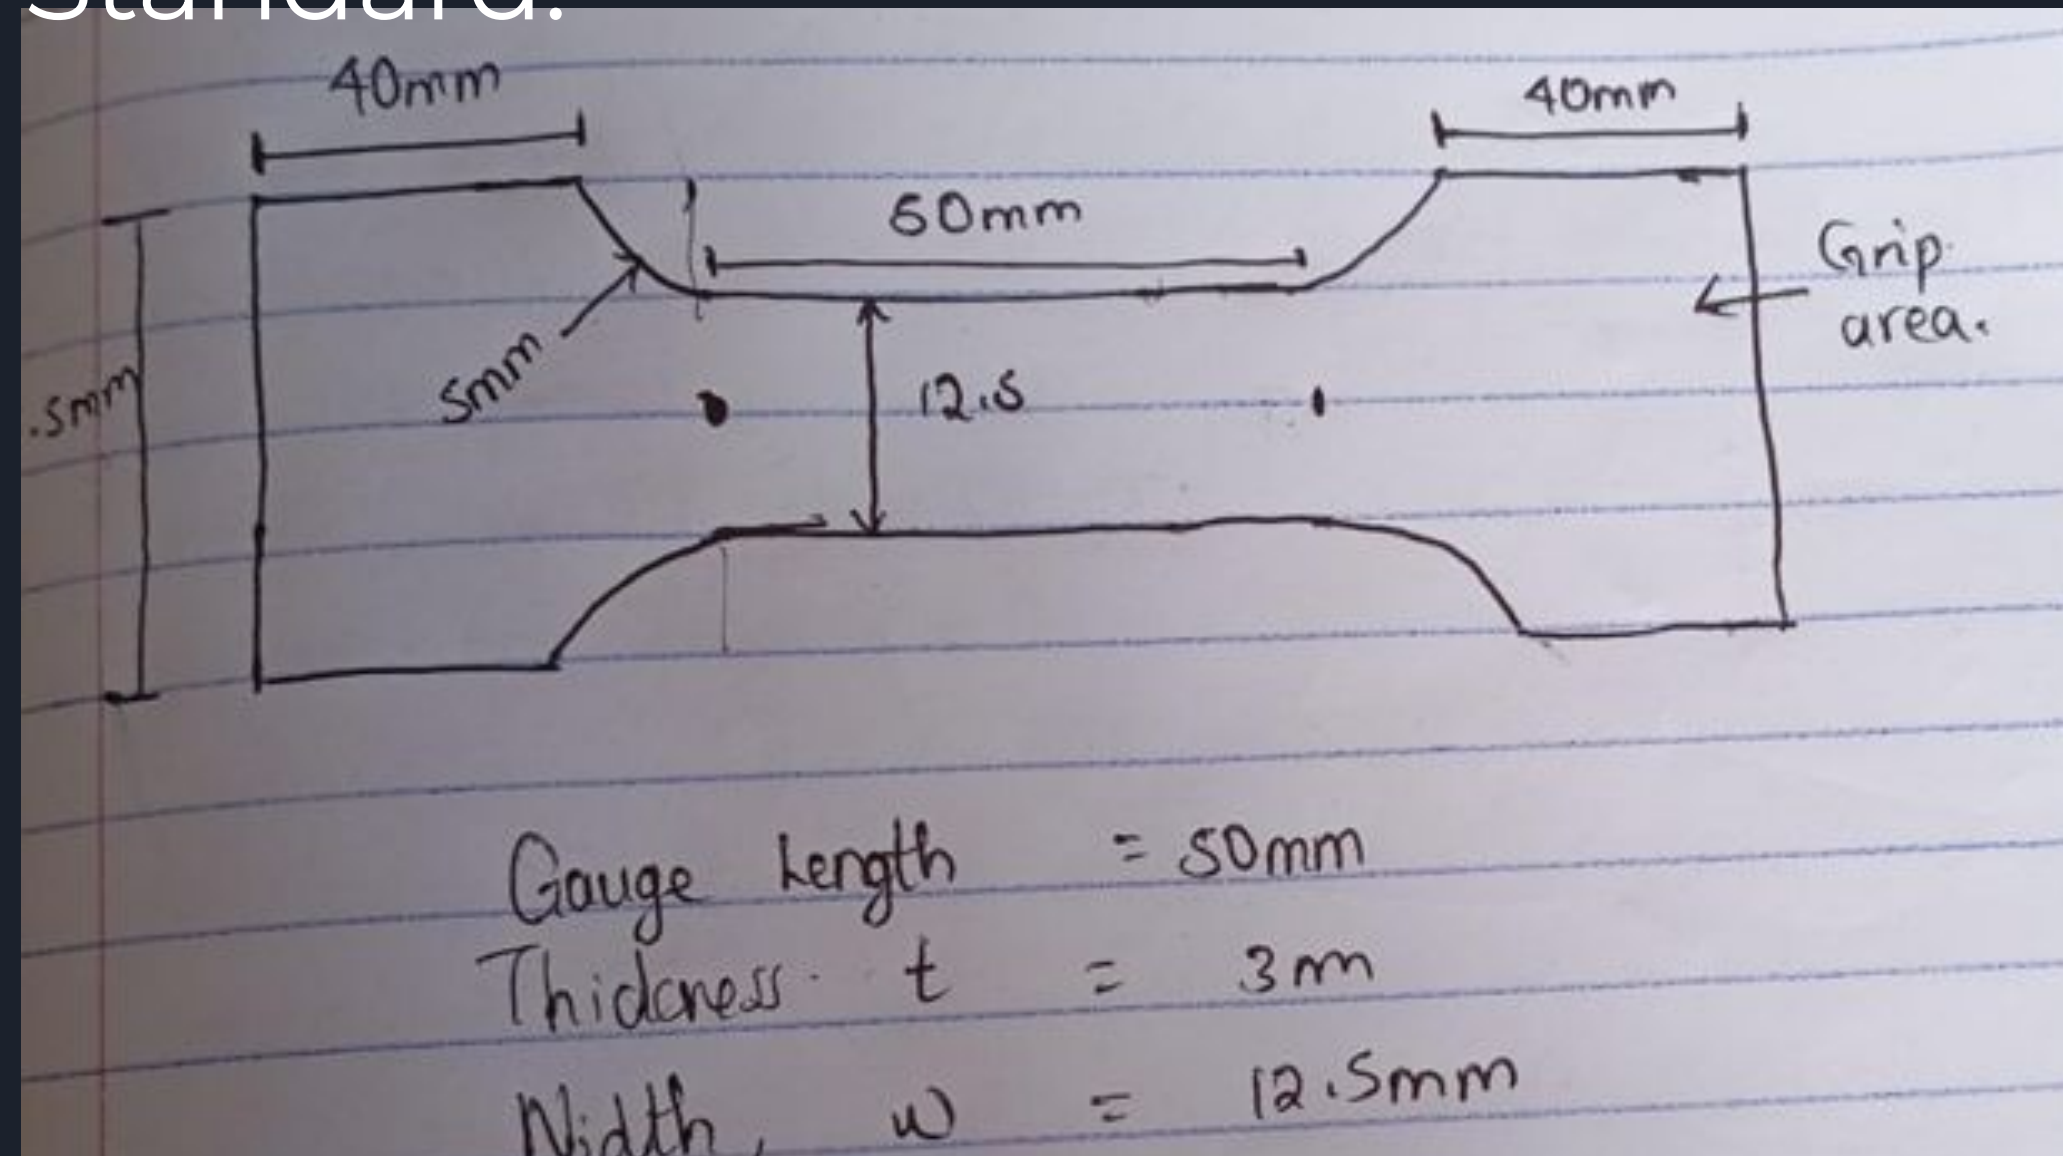 Standard.
40mm
40mm
60mm
Grip
area.
.5mm
5mm
12.5
Gauge Length = 50mm
Thickness t = 3m
Width, w = 12.5mm